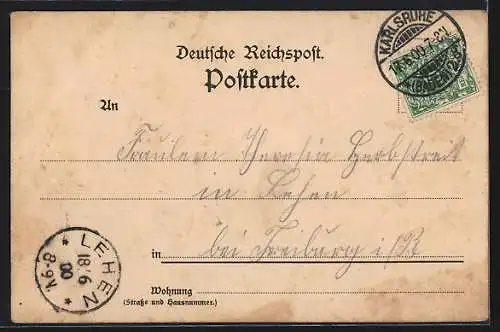 Deutsche Reichspost.
Postkarte.
KARLSRUHE
(BADEN)
An
Fräulein Theresia Herbstreit
in Lehen
in bei Freiburg i/B
Wohnung
(Straße und Hausnummer.)
LEHEN
18 6
00
8-9N